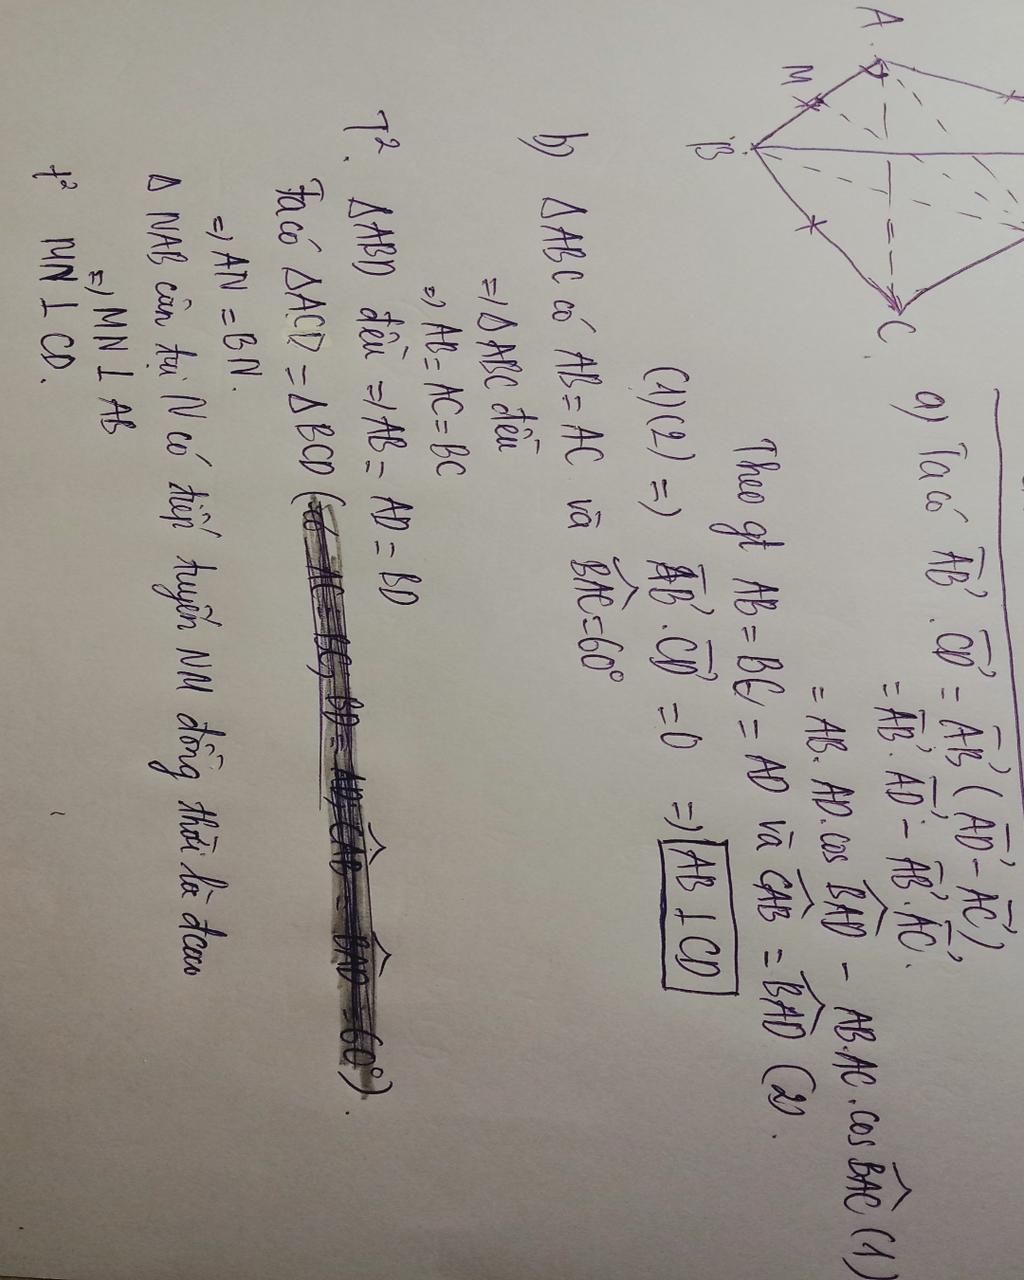 A
M
B
C
a) Ta có AB⃗ . CD⃗ = AB⃗ (AD⃗ - AC⃗)
= AB⃗ . AD⃗ - AB⃗ . AC⃗.
= AB. AD. cos BAD^ - AB. AC. cos BAC^ (1)
Theo gt AB = BC = AD và CAB^ = BAD^ (2).
(1)(2) => AB⃗ . CD⃗ = 0 => AB ⊥ CD
b) Δ ABC có AB = AC và BAC^ = 60°
=> Δ ABC đều
=> AB = AC = BC
T². Δ ABD đều => AB = AD = BD
Ta có Δ ACD = Δ BCD (có AC = BC, BD = AD, CAB^ = BAD^ = 60°).
=> AN = BN.
Δ NAB cân tại N có tiếp tuyến NM đồng thời là đcao
=> MN ⊥ AB
t² MN ⊥ CD.